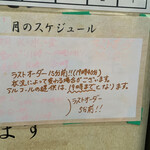 月のスケジュール
ラストオーダー15分前!!(19時40分)
状況によって変わる場合がございます。
アルコールの提供は、19時までとなります。
ラストオーダー
5分前!!
ます